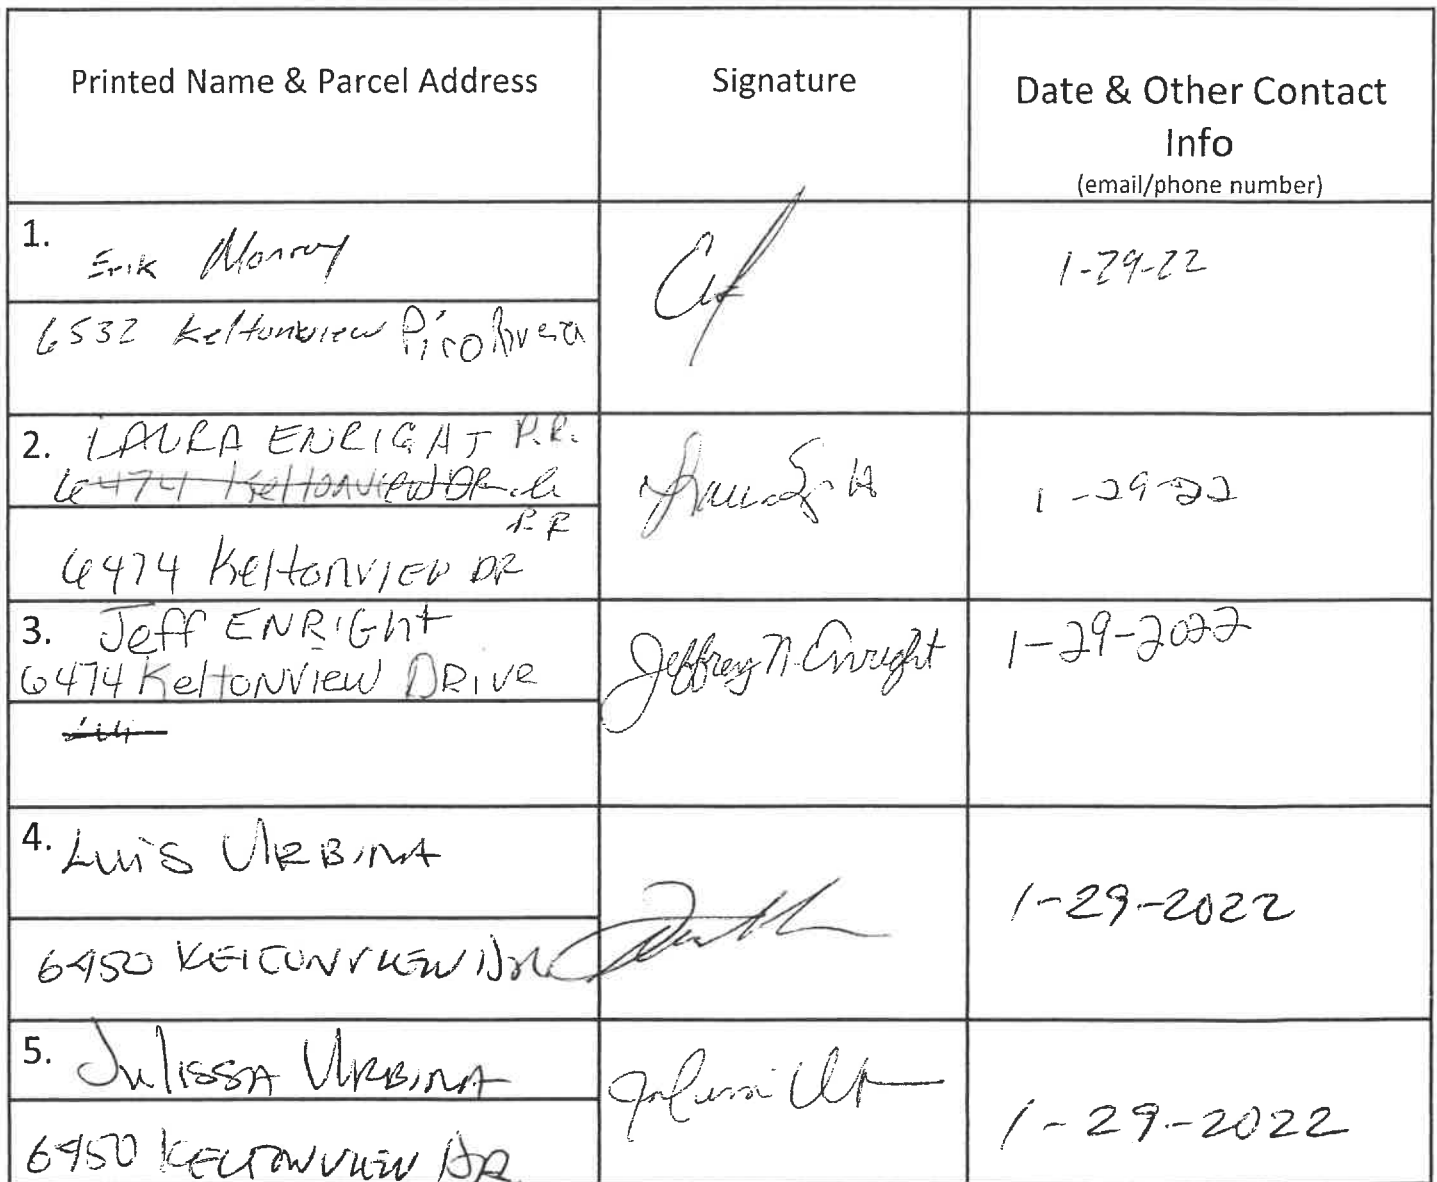 Printed Name & Parcel Address
Signature
Date & Other Contact
Info
(email/phone number)
1.
Erik Monroy
6532 Keltonview Pico Rivera
1-29-22
2. LAURA ENRIGHT P.R.
6474 Keltonview DR
P.R
6474 Keltonview DR
1-29-22
3. Jeff ENRIGHt
6474 KeltonView DRive
Jeffrey N. Enright
1-29-2022
4. Luis URBINA
6450 KELTONVIEW DR
1-29-2022
5. Julissa URBINA
6450 KELTONVIEW DR
1-29-2022